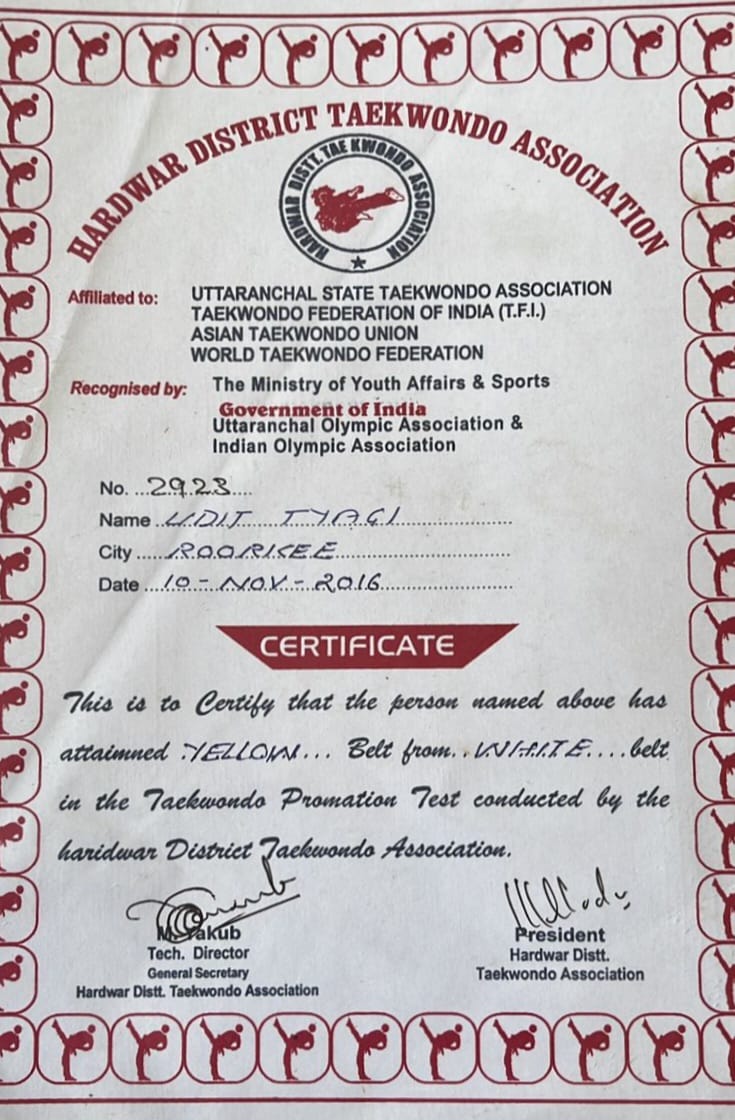 HARDWAR DISTRICT TAEKWONDO ASSOCIATION
HARDWAR DISTT. TAE KWONDO ASSOCIATION
Affiliated to: UTTARANCHAL STATE TAEKWONDO ASSOCIATION
TAEKWONDO FEDERATION OF INDIA (T.F.I.)
ASIAN TAEKWONDO UNION
WORLD TAEKWONDO FEDERATION
Recognised by: The Ministry of Youth Affairs & Sports
Government of India
Uttaranchal Olympic Association &
Indian Olympic Association
No. ...2923....
Name UDIT TYAGI
City ROORKEE
Date 10-NOV-2016
CERTIFICATE
This is to Certify that the person named above has
attaimned YELLOW... Belt from..WHITE....belt
in the Taekwondo Promation Test conducted by the
haridwar District Taekwondo Association.
M. Yakub
Tech. Director
General Secretary
Hardwar Distt. Taekwondo Association
President
Hardwar Distt.
Taekwondo Association